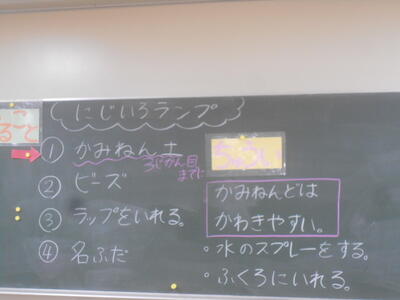 にじいろランプ
こと
①かみねん土
3じかん目
までに
②ビーズ
③ラップをいれる。
④名ふだ
ちゅうい
かみねんどは
かわきやすい。
・水のスプレーをする。
・ふくろにいれる。